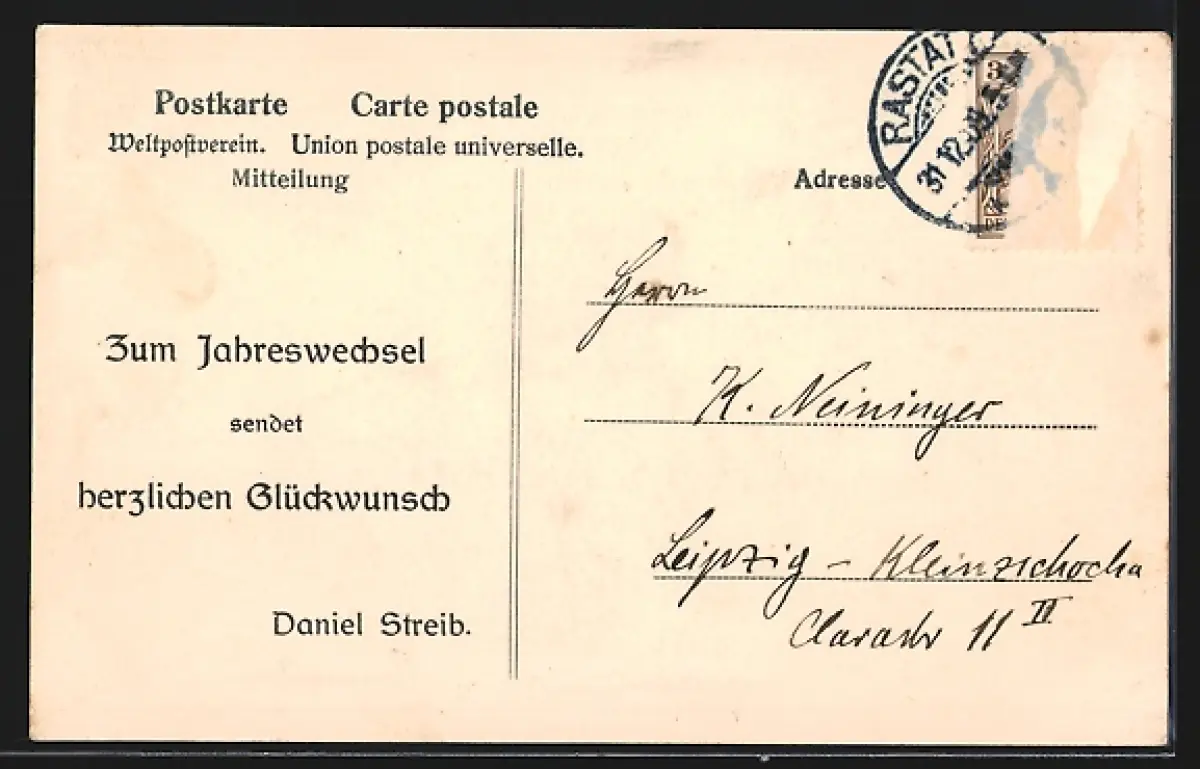 Postkarte Carte postale
Weltpostverein. Union postale universelle.
Mitteilung
Adresse
RASTATT
31.12.
3
DE
Zum Jahreswechsel
sendet
herzlichen Glückwunsch
Daniel Streib.
Herrn
K. Neininger
Leipzig – Kleinzschocha
Clarastr 11 II